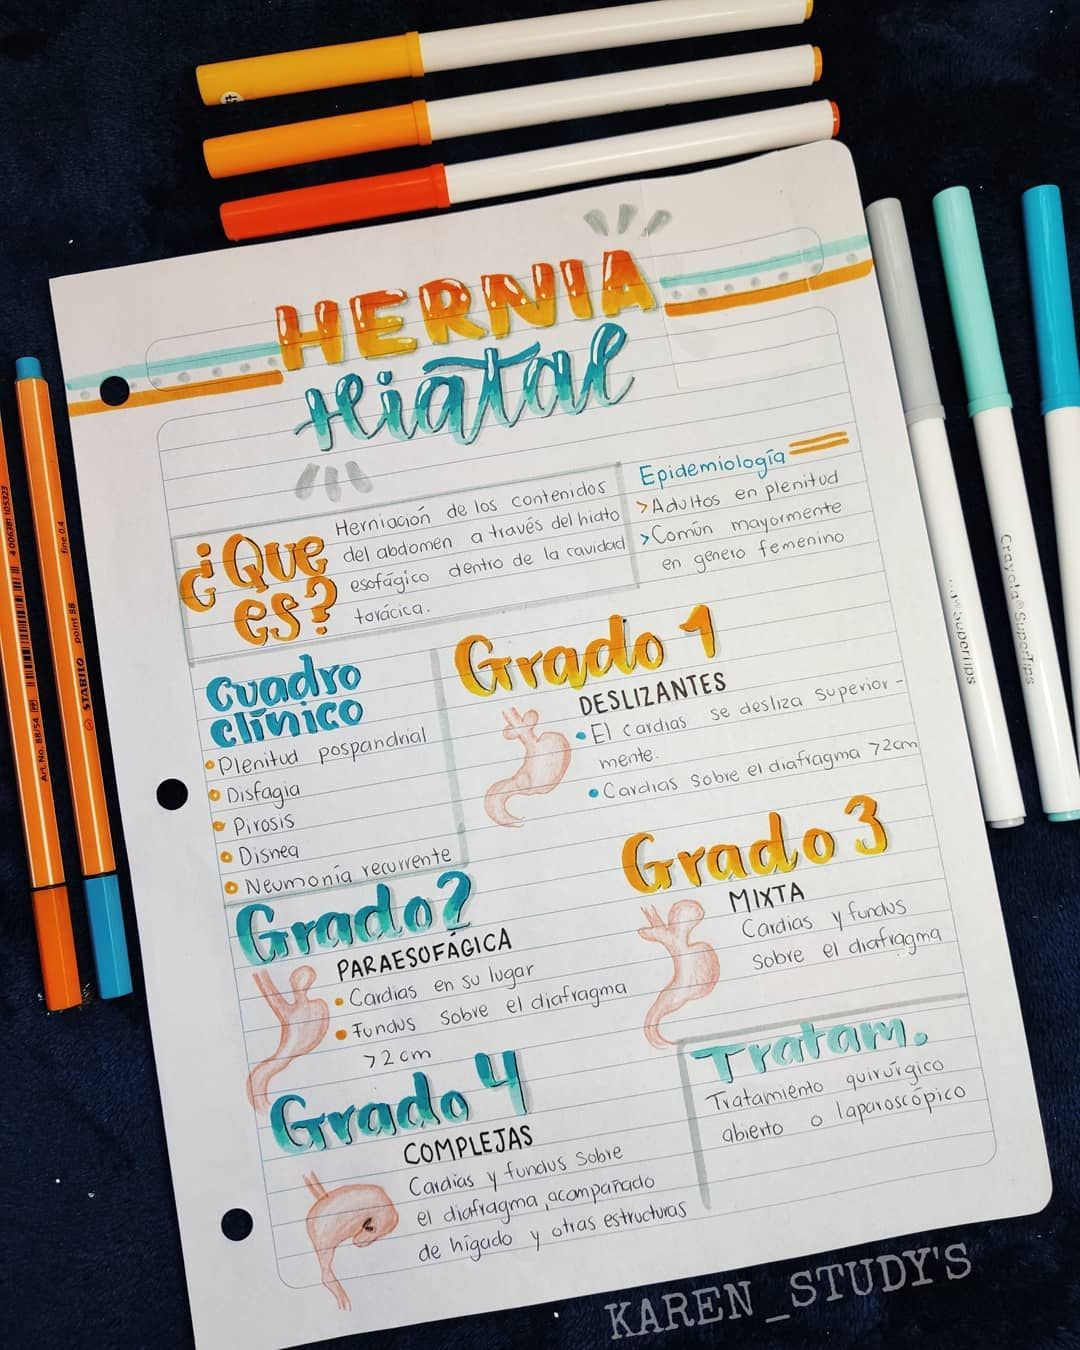 HERNIA
Hiatal
¿Que
es?
Herniación de los contenidos
del abdomen a través del hiato
esofágico dentro de la cavidad
torácica.
Epidemiología
> Adultos en plenitud
> Común mayormente
en genero femenino
Cuadro
clínico
• Plenitud pospandrial
• Disfagia
• Pirosis
• Disnea
• Neumonía recurrente
Grado 1
DESLIZANTES
• El cardias se desliza superior-
mente.
• Cardias sobre el diafragma >2cm
Grado 2
PARAESOFÁGICA
• Cardias en su lugar
• Fundus sobre el diafragma
>2cm
Grado 3
MIXTA
Cardias y fundus
sobre el diafragma
Grado 4
COMPLEJAS
Cardias y fundus sobre
el diafragma, acompañado
de hígado y otras estructuras
Tratam.
Tratamiento quirúrgico
abierto o laparoscópico
KAREN_STUDY'S
Crayola® SuperTips
SuperTips
STABILO point 88
fine 0.4
Art. No. 88/54
4 006381 105323